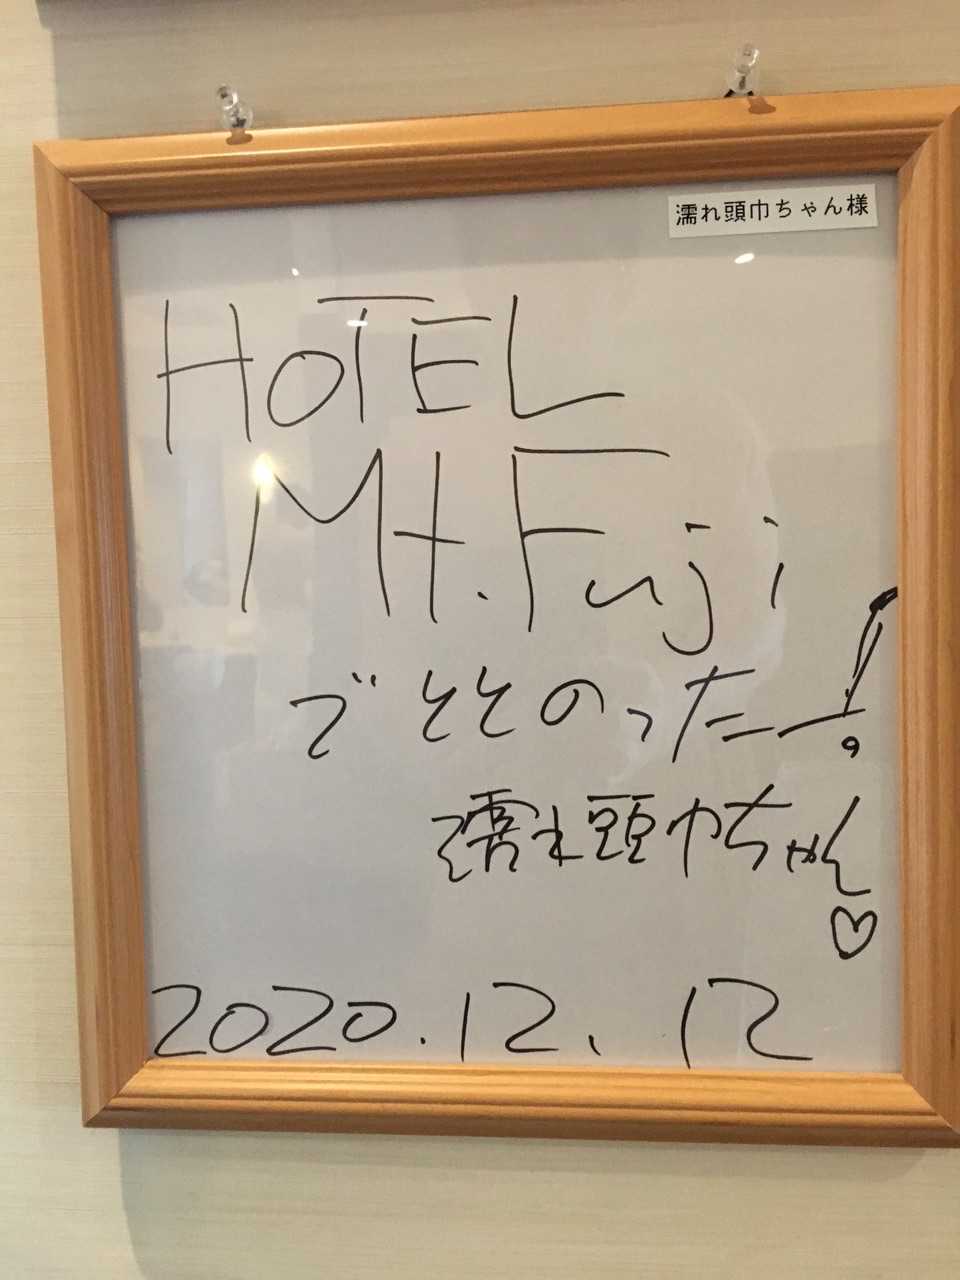 濡れ頭巾ちゃん様
HOTEL
Mt.Fuji
でととのったー!
濡れ頭巾ちゃん♡
2020.12.12